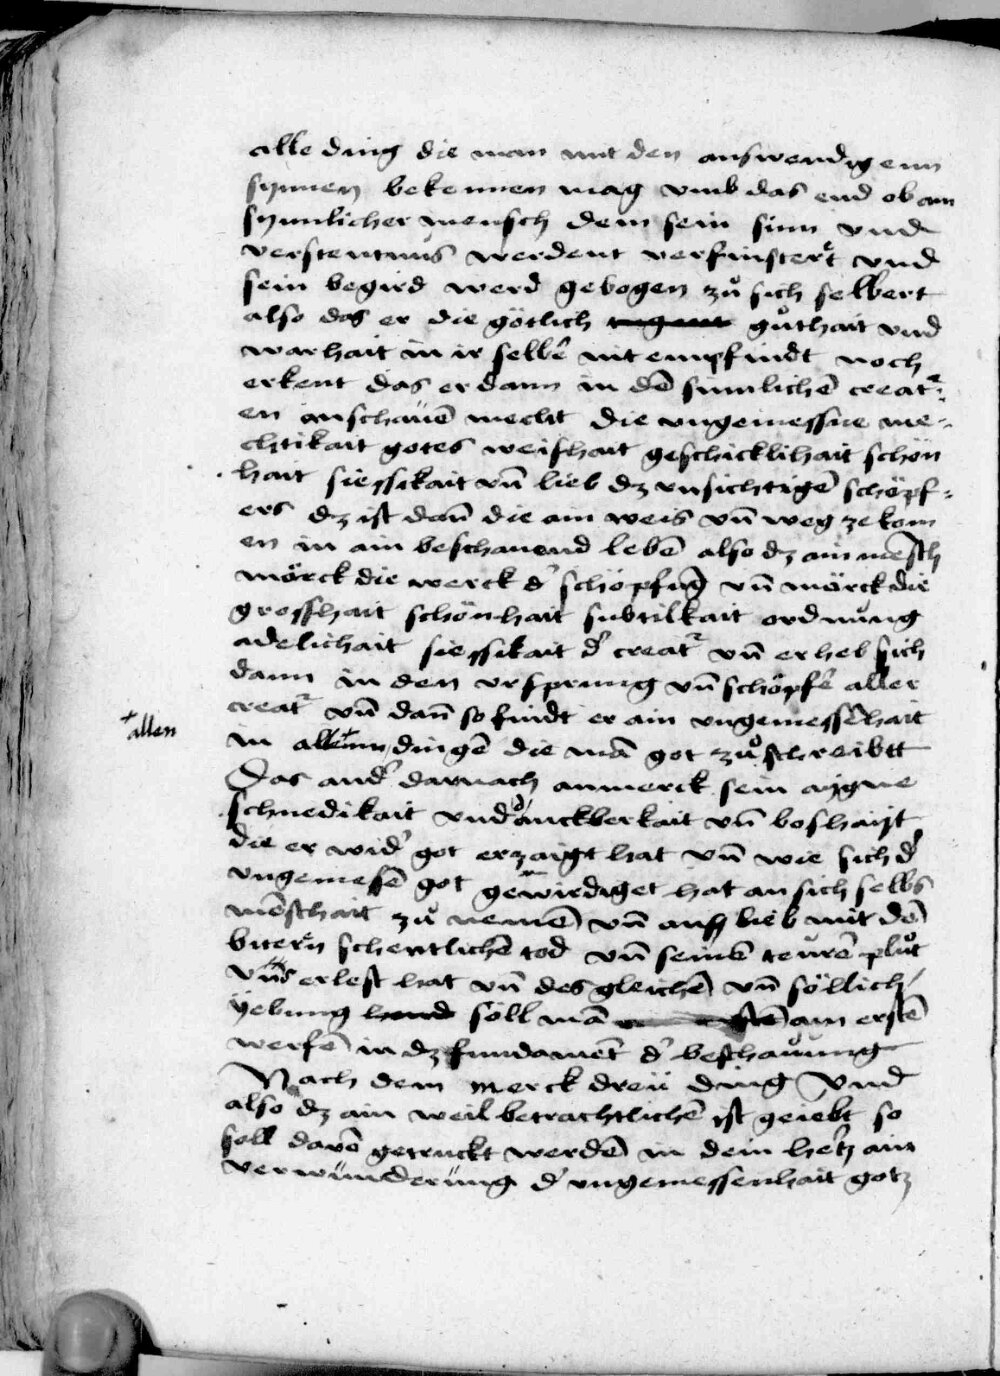 alle ding die man mit den auswendigenn
synnen bekennen mag vmb das end ob ain
synnlicher mensch dem sein sinn vnd
verstentnus werdent verfinstert vnd
sein begird werd gebogen zů sich selbert
also das er die götlich gůthait vnd
warhait in ir selbē nit empfindt noch
erkent das er dann in dē sinnlichē creat᷑:
en anschauē mecht die vngemessne me-
chtikait gotes weishait geschicklihait schön
hait siessikait vn̄ lieb dz vnsichtigē schöpf-
ers dz ist dan̄ die ain weis vn̄ weg ze kom
en in ain beschauend lebē also dz ain mēsch
mörck die werck d' schöpfūg vn̄ mörck die
grosshait schönhait subtilkait ordnung
adelichait siessikait d' creat᷑ vn̄ erheb sich
dann in den vrsprung vn̄ schöpfē aller
creat᷑ vn̄ dan̄ so findt er ain vngemessēhait
+ allen
in dingē die mā got zůschreibtt
Das and' darnach anmerck sein aigne
schnedikait vnd vn̄ boshait
die er wid' got erzaigt hat vn̄ wie sich d'
vngemesē got gewirdiget hat an sich selbs
mēschait zů nemē vn̄ aus lieb mit dē
bitern schentlichē tod vn̄ seinē teurē plůt
vns erlest hat vn̄ des gleichē vn̄ söllich
yebung söll mā am erstē
werfē in dz fundamēt d' beschauung
Nach dem merck dreü ding Vnd
also dz ain weil betrachtlichē ist geiebt so
soll davō getruckt werdē in dein hertz ain
verwünderüng d' vngemessenhait gotz